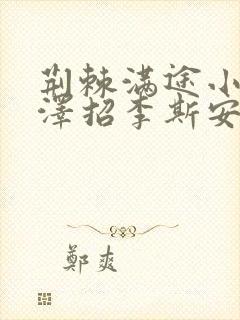 荆棘满途小
泽招李斯安
鄭爽